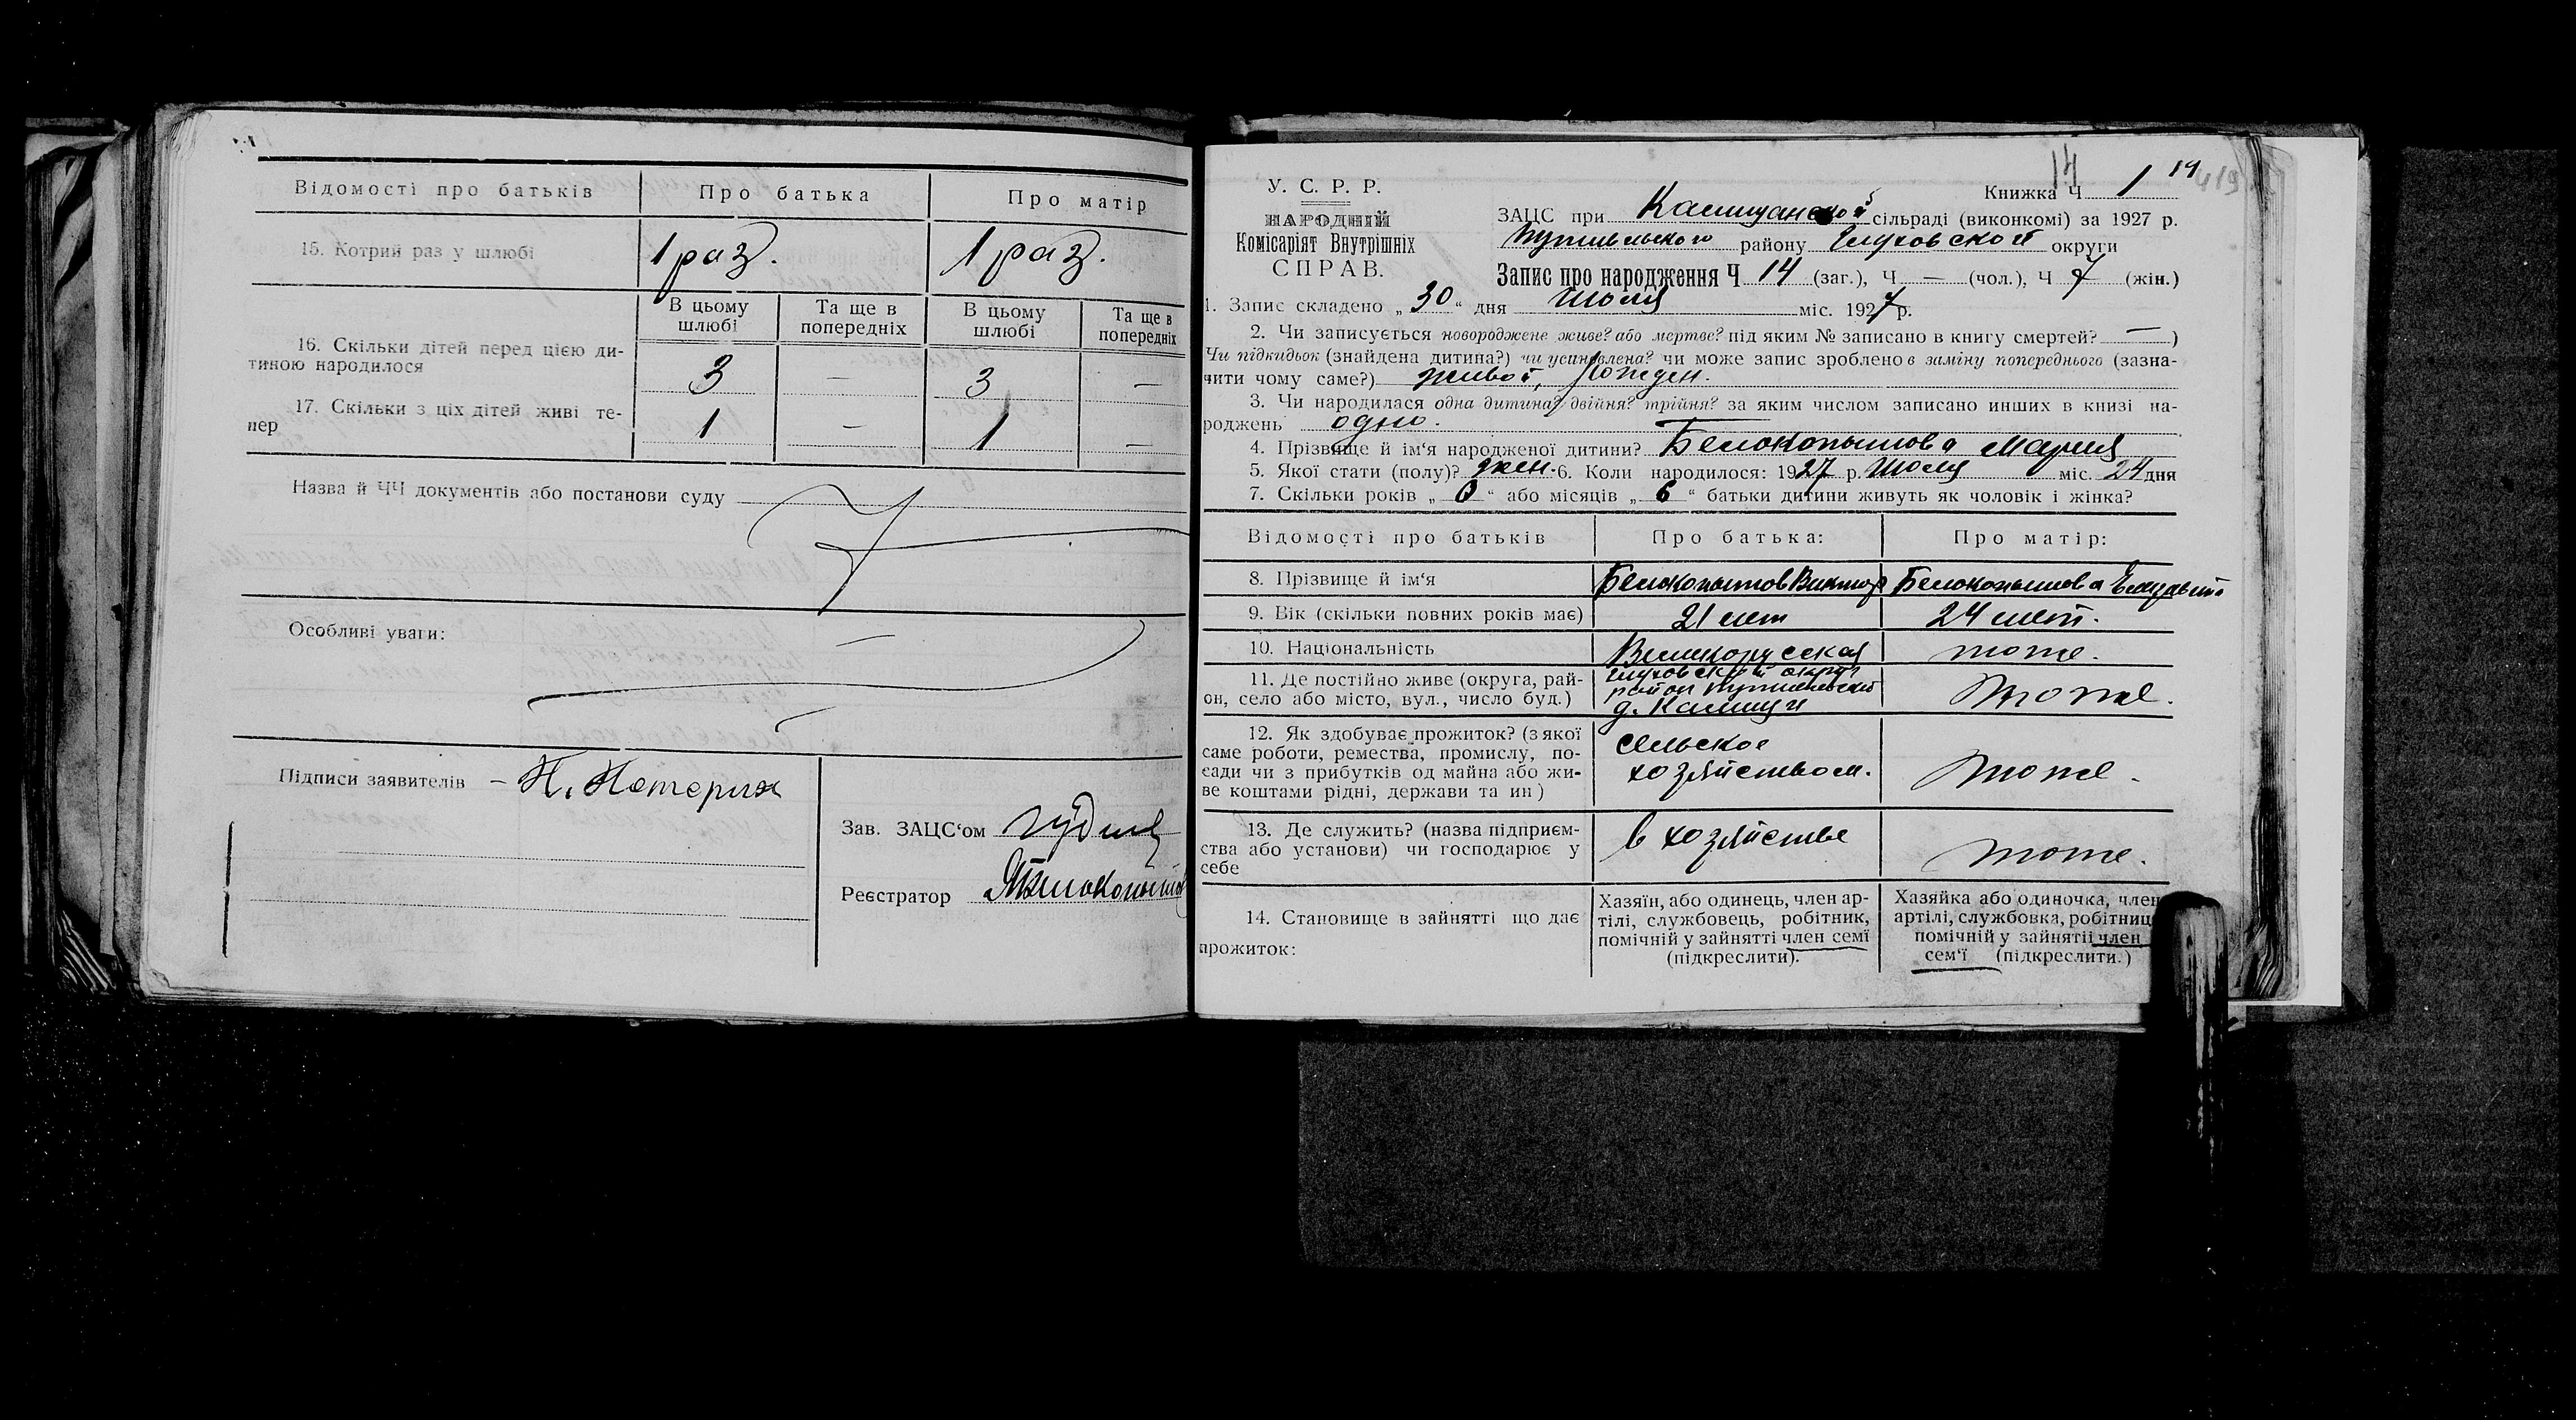 Відомості про батьків Про батька Про матір
15. Котрий раз у шлюбі 1 раз. 1 раз.
В цьому шлюбі Та ще в попередніх В цьому шлюбі Та ще в попередніх
16. Скільки дітей перед цією ди-
тиною народилося 3 — 3 —
17. Скільки з ціх дітей живі те-
пер 1 — 1 —
Назва й ЧЧ документів або постанови суду
Особливі уваги:
Підписи заявителів –
Зав. ЗАЦС‘ом
Реєстратор
У. С. Р. Р.
НАРОДНІЙ
Комісаріят Внутрішніх
СПРАВ.
14
Книжка Ч 1
14
419
ЗАЦС при сільраді (виконкомі) за 1927 р.
Путивльского району Глуховской округи
Запис про народження Ч 14 (заг.), Ч — (чол.), Ч 7 (жін.)
1. Запис складено „30“ дня Июля міс. 1927 р.
2. Чи записується новороджене живе? або мертве? під яким № записано в книгу смертей? — )
Чи підкидьок (знайдена дитина?) чи усиновлена? чи може запис зроблено в заміну попереднього (зазна-
чити чому саме?) живой, рожден.
3. Чи народилася одна дитина? двійня? трійня? за яким числом записано инших в книзі на-
роджень одно.
4. Прізвище й ім'я народженої дитини? Белокопытова Мария
5. Якої стати (полу)? жен. 6. Коли народилося: 1927 р. Июля міс. 24 дня
7. Скільки років „ 0 “ або місяців „ 6 “ батьки дитини живуть як чоловік і жінка?
Відомості про батьків Про батька: Про матір:
8. Прізвище й ім'я Белокопытов Виктор Белокопытова Елизавета
9. Вік (скільки повних років має) 21 лет 24 лет.
10. Національність Великорусская тоже.
11. Де постійно живе (округа, рай-
он, село або місто, вул., число буд.) Глуховский округ
район Путивльский
д. Калищи тоже.
12. Як здобуває прожиток? (з якої
саме роботи, ремества, промислу, по-
сади чи з прибутків од майна або жи-
ве коштами рідні, держави та ин)
сельское
хозяйством. тоже.
13. Де служить? (назва підприєм-
ства або установи) чи господарює у
себе
в хозяйстве тоже.
14. Становище в зайнятті що дає
прожиток:
Хазяїн, або одинець, член ар-
тілі, службовець, робітник,
помічній у зайнятті член семї
(підкреслити).
Хазяйка або одиночка, член
артілі, службовка, робітниц
помічній у зайнятіі член
сем‘ї (підкреслити.)